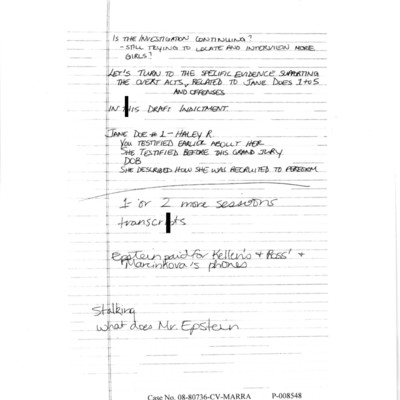 IS THE INVESTIGATION CONTINUING?
- STILL TRYING TO LOCATE AND INTERVIEW MORE
GIRLS?
LET'S TURN TO THE SPECIFIC EVIDENCE SUPPORTING
THE OVERT ACTS, RELATED TO JANE DOES 1 TO 5
AND OFFENSES
IN THIS DRAFT INDICTMENT.
JANE DOE #1 - HALEY R.
YOU TESTIFIED EARLIER ABOUT HER
SHE TESTIFIED BEFORE THIS GRAND JURY.
DOB
SHE DESCRIBED HOW SHE WAS RECRUITED TO PERFORM
1 or 2 more sessions
transcripts
Epstein paid for Kellen's + Ross' +
Marcinkova's phones
Stalking
What does Mr. Epstein
Case No. 08-80736-CV-MARRA P-008548